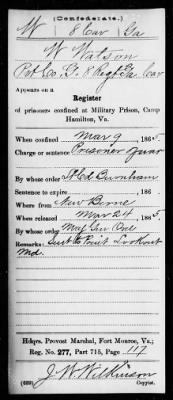 (Confederate.)
W 8 Cav Ga
W Watson
Pvt Co. G. 8 Regt Ga Cav
Appears on a
Register
of prisoners confined at Military Prison, Camp
Hamilton, Va.
When confined Mar 9, 1865.
Charge or sentence Prisoner War
By whose order P. Ed Burnham
Sentence to expire , 186 .
Where from New Berne
When released Mar 24, 1865.
By whose order Maj Gen Ord
Remarks: Sent to Point Lookout
Md.
Hdqrs. Provost Marshal, Fort Monroe, Va.;
Reg. No. 277, Part 715, Page 117
J. W. Wilkinson
(639) Copyist.